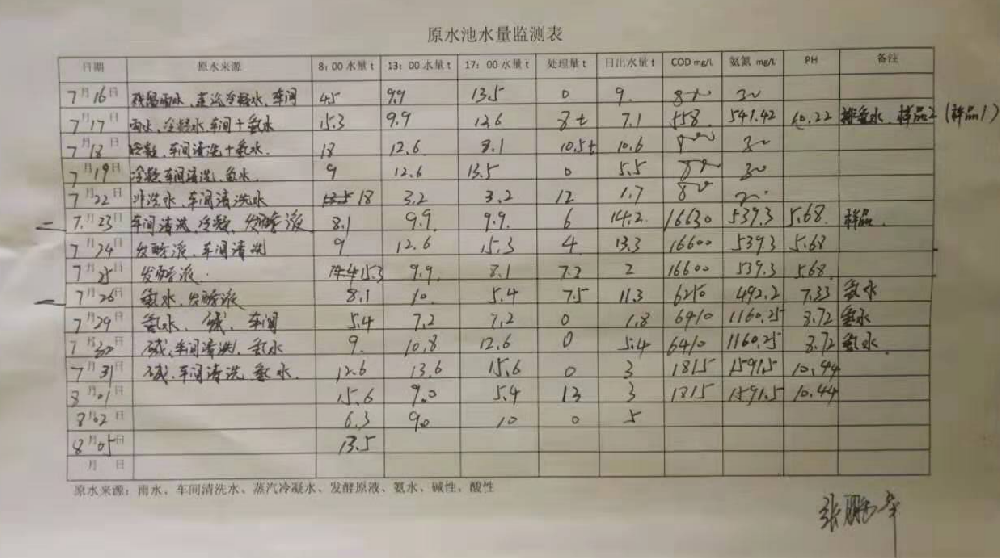 原水池水量监测表
日期 原水来源 8：00水量t 13：00水量t 17：00水量t 处理量t 日出水量t COD mg/L 氨氮 mg/L PH 备注
7月16日 残留雨水、蒸汽冷凝水、车间 45 9.9 13.5 0 9. 800 30
7月17日 雨水、冷凝水、车间+氨水 15.3 9.9 12.6 8t 7.1 558 541.42 10.22 氨水、样品2（样品1）
7月18日 冷凝、车间清洗+氨水. 18 12.6 8.1 10.5t 10.6 800 30
7月19日 冷凝车间清洗、鱼水. 9 12.6 13.5 0 5.5 800 30
7月22日 洗水、车间清洗水 18 3.2 3.2 12 1.7 800
7.月23日 车间清洗、冷凝、发酵液 8.1 9.9 9.9. 6 14.2. 16630 539.3 5.68. 样品.
7月24日 发酵液、车间清洗 9 12.6 15.3 4 13.3 16600 539.3 5.68
7月25日 发酵液. 15.3 9.9. 8.1 7.2 2 16600 539.3 5.68.
7月26日 氨水、发酵液 8.1 10. 5.4 7.5 11.3 6210 492.2 7.33 氨水
7月29日 氨水、碱、车间 5.4 7.2 7.2 0 1.8 6410 1160.25 8.72 氨水
7月30日 碱、车间清洗、氨水 9. 10.8 12.6 0 5.4 6410 1160.25 8.72 氨水
7月31日 碱、车间清洗、氨水. 12.6 13.6 15.6 0 3 1815 1591.5 10.44
8月01日 15.6 9.0 5.4 13 3 1815 1591.5 10.44
8月02日 6.3 9.0 10 0 5
8月05日 13.5
月 日
原水来源：雨水、车间清洗水、蒸汽冷凝水、发酵原液、氨水、碱性、酸性